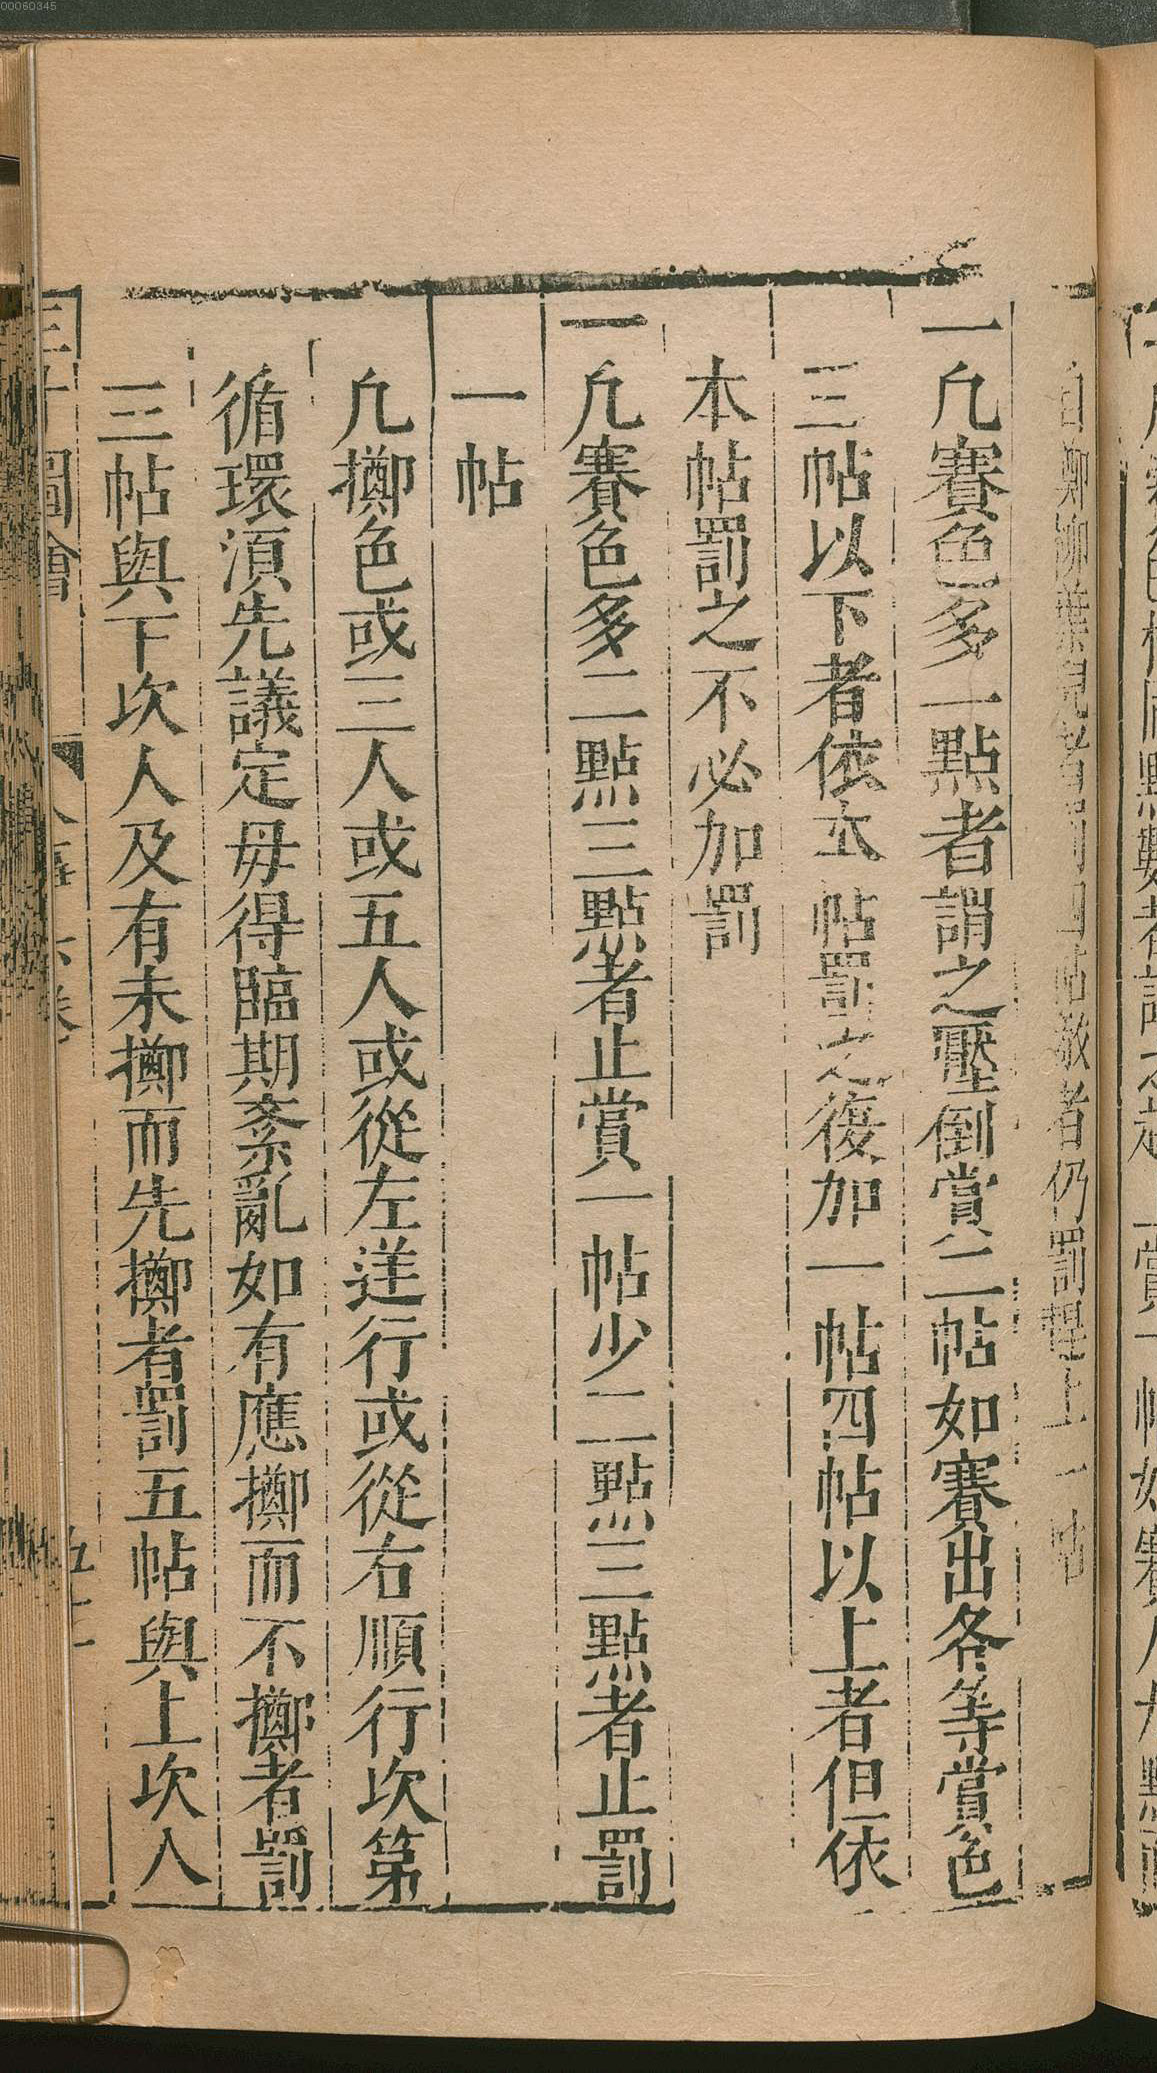 自擲柳葉兒者罰四帖散者仍罰程上一帖
一凢賽色多一點者謂之壓倒賞二帖如賽出各等賞色
三帖以下者依本帖罰之復加一帖四帖以上者但依
本帖罰之不必加罰
一凢賽色多二點三點者止賞一帖少二點三點者止罰
一帖
凢擲色或三人或五人或從左逆行或從右順行次第
循環湏先議定毋得臨期紊亂如有應擲而不擲者罰
三帖與下次人及有未擲而先擲者罰五帖與上次人
三才圖會
人事六卷
00060345